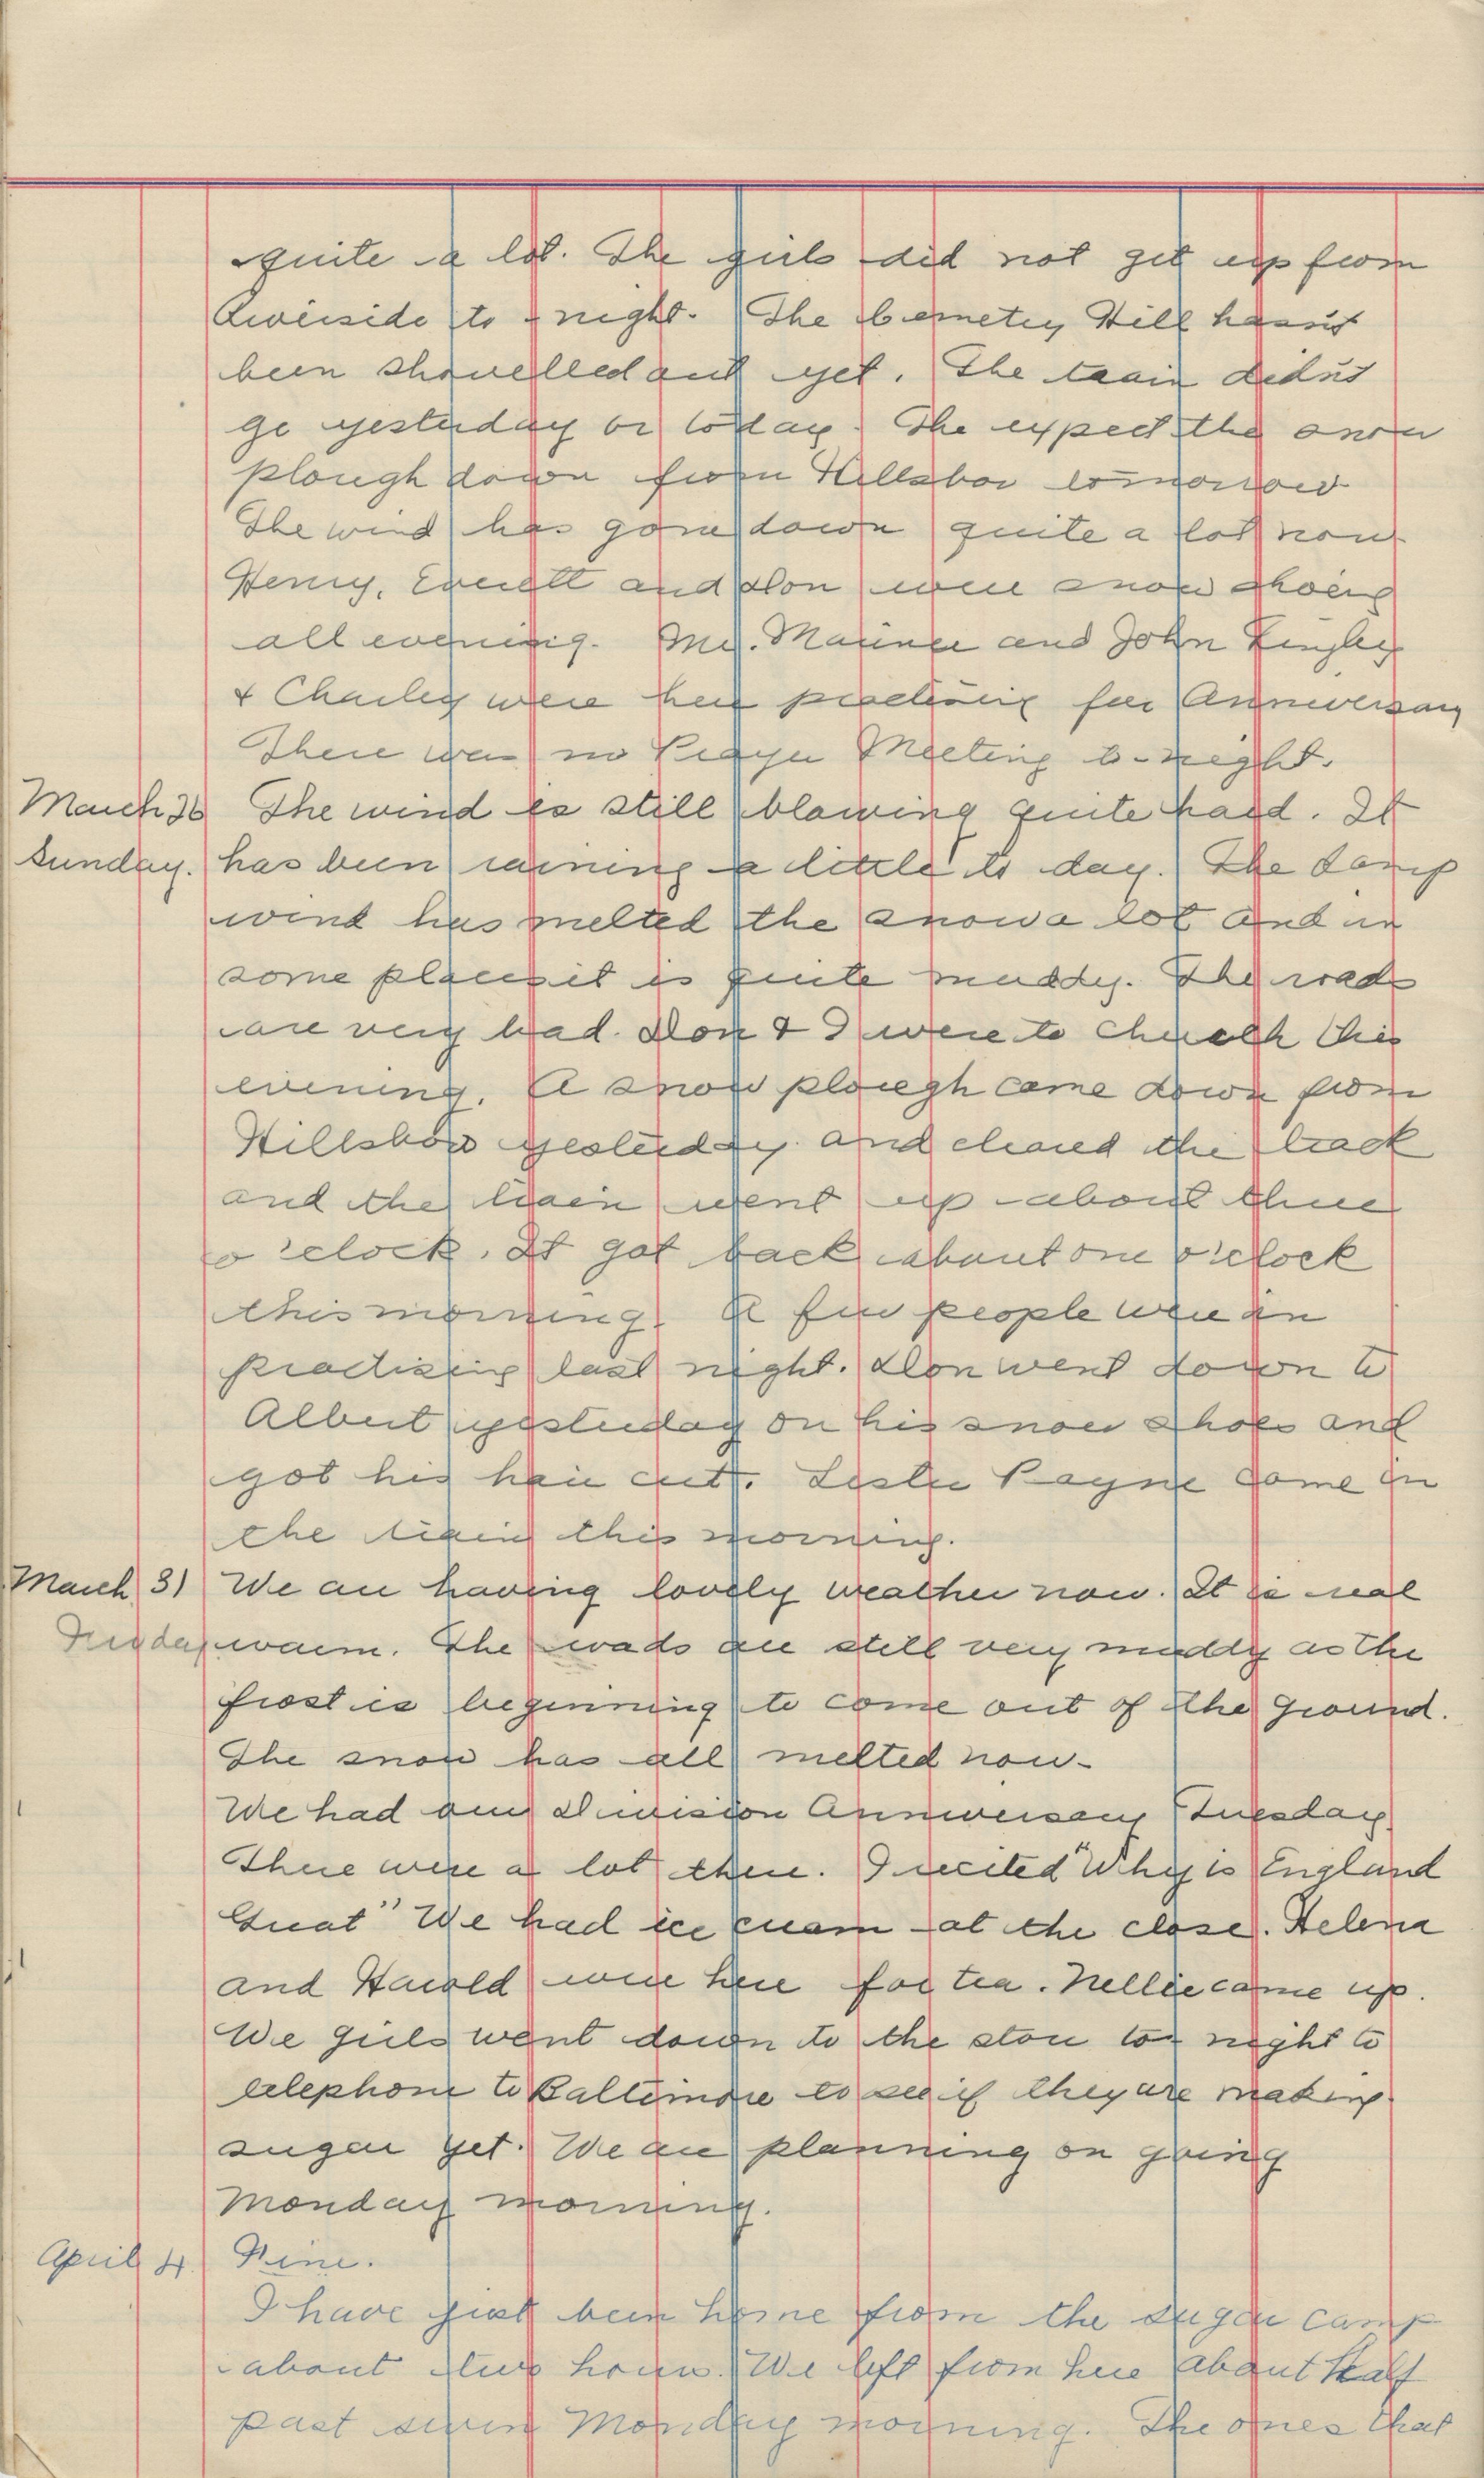 quite a lot. The girls did not get up from
Riverside to night. The Cemetery Hill hasn't
been shovelled out yet. The train didn't
go yesterday or today. The expect the snow
plough down from Hillsboro tomorrow
The wind has gone down quite a lot now
Henry, Everett and Don were snow shoeing
all evening. and John Tingley
& Charley were here practising for Anniversary
There was no Prayer Meeting to-night.
March 26 The wind is still blowing quite hard. It
Sunday. has been raining a little to day. The damp
wind has melted the snow a lot and in
some places it is quite muddy. The roads
are very bad. Don & I were to church this
evening. A snow plough came down from
Hillsboro yesterday and cleared the track
and the train went up about three
o'clock. It got back about one o'clock
this morning. A few people were in
practising last night. Don went down to
Albert yesterday on his snow shoes and
got his hair cut. Leslie Payne came in
the train this morning.
March 31 We are having lovely weather now. It is real
Friday warm. The roads are still very muddy as the
frost is beginning to come out of the ground.
The snow has all melted now-
We had our Division Anniversary Tuesday
There were a lot there. I recited "Why is England
Great" We had ice cream at the close. Helena
and Harold were here for tea. Nellie came up.
We girls went down to the store to night to
telephone to Baltimore to see if they are making
sugar yet. We are planning on going
Monday morning.
April 4. Fine.
I have just been home from the sugar camp
about two hours. We left from here about half
past seven Monday morning. The ones that